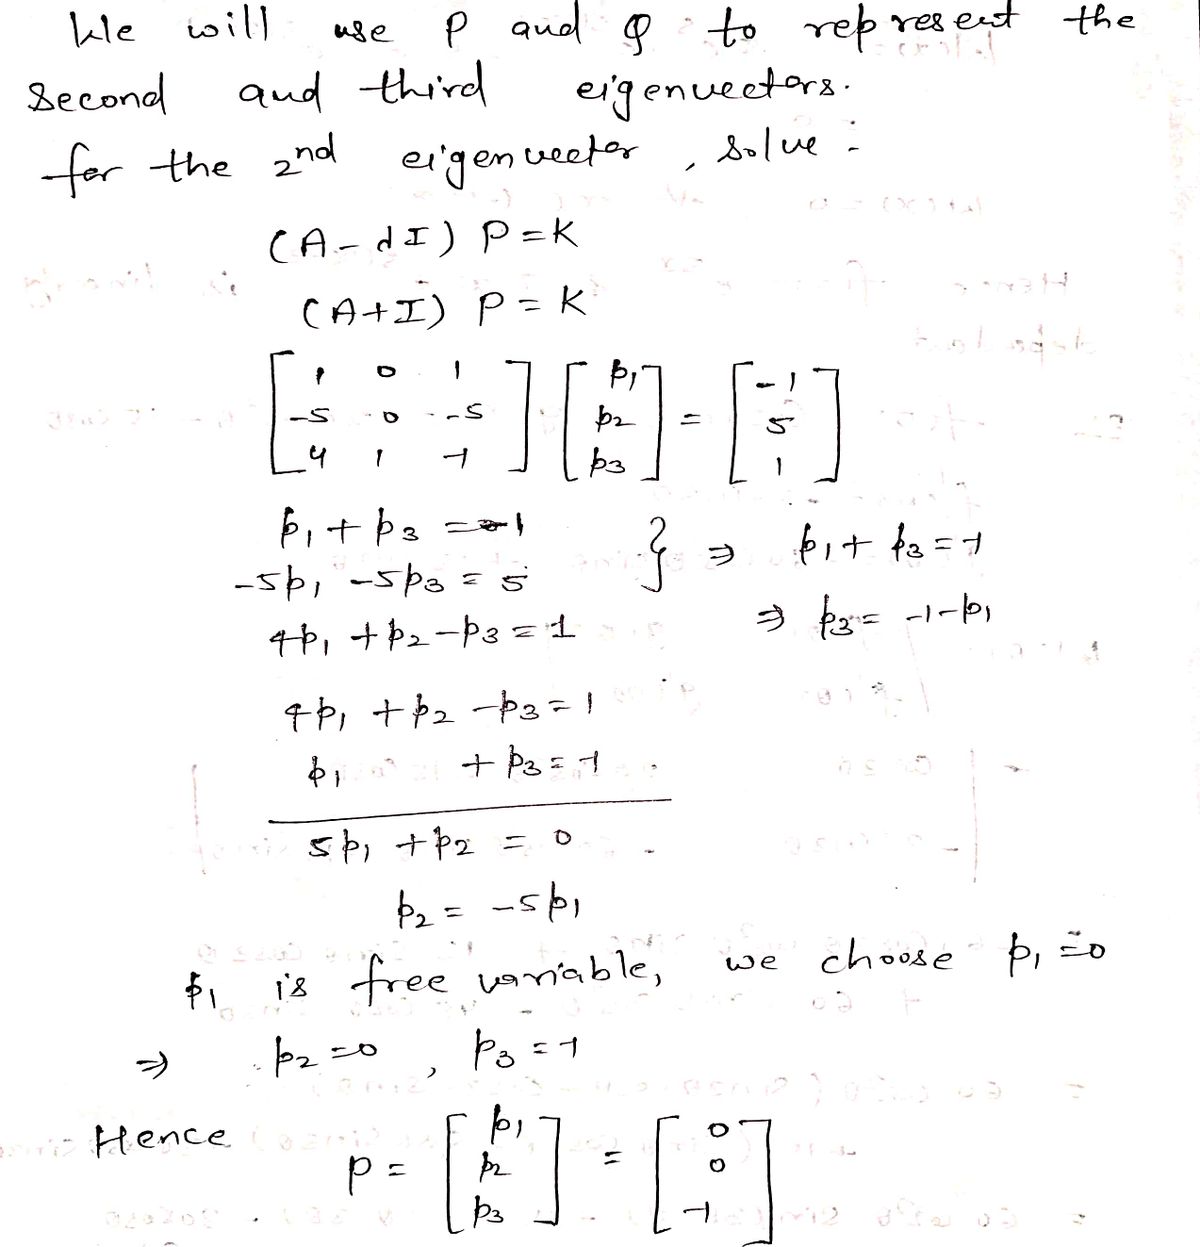 We will use P and Q to represent the
second and third eigenvectors.
for the 2nd eigenvector, solve :
(A - dI) P = K
(A + I) P = K
[1 0 1; -5 0 -5; 4 1 -1] [p1; p2; p3] = [-1; 5; 1]
p1 + p3 = -1
-5p1 - 5p3 = 5
} ⇒ p1 + p3 = -1
4p1 + p2 - p3 = 1
⇒ p3 = -1 - p1
4p1 + p2 - p3 = 1
p1 + p3 = -1
5p1 + p2 = 0
p2 = -5p1
p1 is free variable, we choose p1 = 0
⇒ p2 = 0, p3 = -1
Hence
P = [p1; p2; p3] = [0; 0; -1]